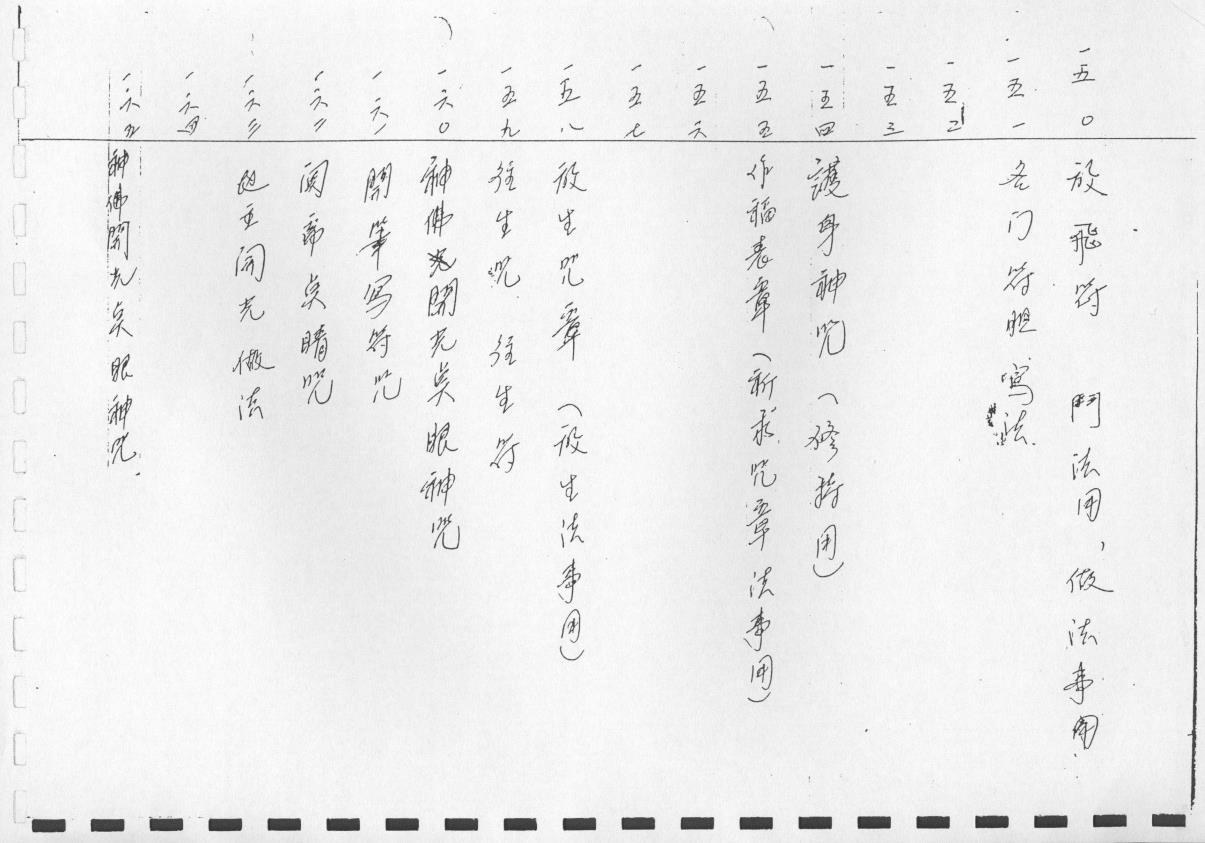 一五〇 放飛符 鬥法用，做法事用
一五一 各门符胆写法
一五二
一五三
一五四 護身神咒（修持用）
一五五 作福表章（祈求咒章法事用）
一五六
一五七
一五八 放生咒章（放生法事用）
一五九 往生咒 往生符
一六〇 神佛開光点眼神咒
一六一 開筆写符咒
一六二 関帝点睛咒
一六三 開光做法
一六四
一六五 神佛開光点眼神咒.